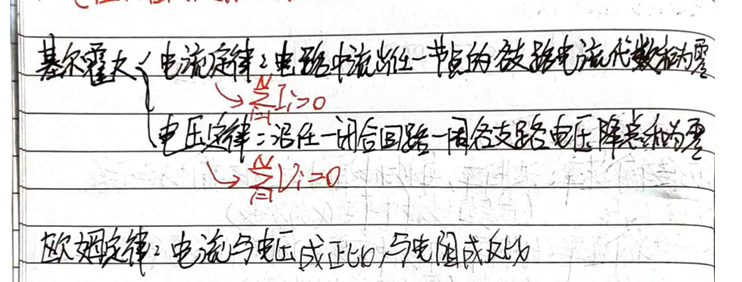 基尔霍夫{电流定律：电路中流出任一节点的各支路电流代数和为零
→ \sum_{i=1}^{N} I_i=0
电压定律：沿任一闭合回路一周各支路电压降总和为零
→ \sum_{i=1}^{N} V_i=0
欧姆定律：电流与电压成正比，与电阻成反比